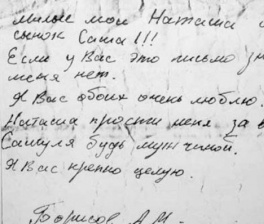 милые мои Наташа и
сынок Саша!!!
Если у Вас это письмо зн
меня нет.
Я Вас обоих очень люблю.
Наташа прости меня за в
Сашуля будь мужчиной.
Я Вас крепко целую.
Борисов А.М.